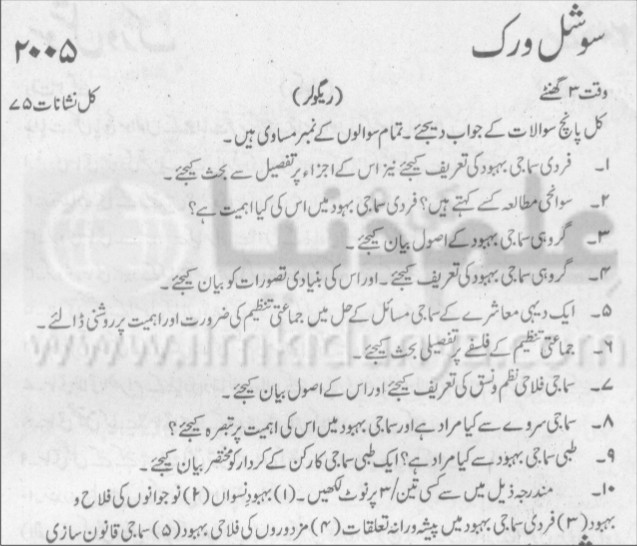 سوشل ورک ۲۰۰۵
وقت ۳ گھنٹے (ریگولر) کل نشانات ۷۵
کل پانچ سوالات کے جواب دیجئے۔ تمام سوالوں کے نمبر مساوی ہیں۔
۱۔ فردی سماجی بہبود کی تعریف کیجئے نیز اس کے اجزاء پر تفصیل سے بحث کیجئے۔
۲۔ سوانحی مطالعہ کسے کہتے ہیں؟ فردی سماجی بہبود میں اس کی کیا اہمیت ہے؟
۳۔ گروہی سماجی بہبود کے اصول بیان کیجئے۔
۴۔ گروہی سماجی بہبود کی تعریف کیجئے۔ اور اس کی بنیادی تصورات کو بیان کیجئے۔
۵۔ ایک دیہی معاشرے کے سماجی مسائل کے حل میں جماعتی تنظیم کی ضرورت اور اہمیت پر روشنی ڈالئے۔
۶۔ جماعتی تنظیم کے فلسفے پر تفصیلی بحث کیجئے۔
۷۔ سماجی فلاحی نظم و نسق کی تعریف کیجئے اور اس کے اصول بیان کیجئے۔
۸۔ سماجی سروے سے کیا مراد ہے اور سماجی بہبود میں اس کی اہمیت پر تبصرہ کیجئے؟
۹۔ طبی سماجی بہبود سے کیا مراد ہے؟ ایک طبی سماجی کارکن کے کردار کو مختصر بیان کیجئے۔
۱۰۔ مندرجہ ذیل میں سے کسی تین/۳ پر نوٹ لکھیں۔ (۱) بہبود نسواں (۲) نوجوانوں کی فلاح و
بہبود (۳) فردی سماجی بہبود میں پیشہ ورانہ تعلقات (۴) مزدوروں کی فلاحی بہبود (۵) سماجی قانون سازی
علم کی دنیا
www.ilmkidunya.com